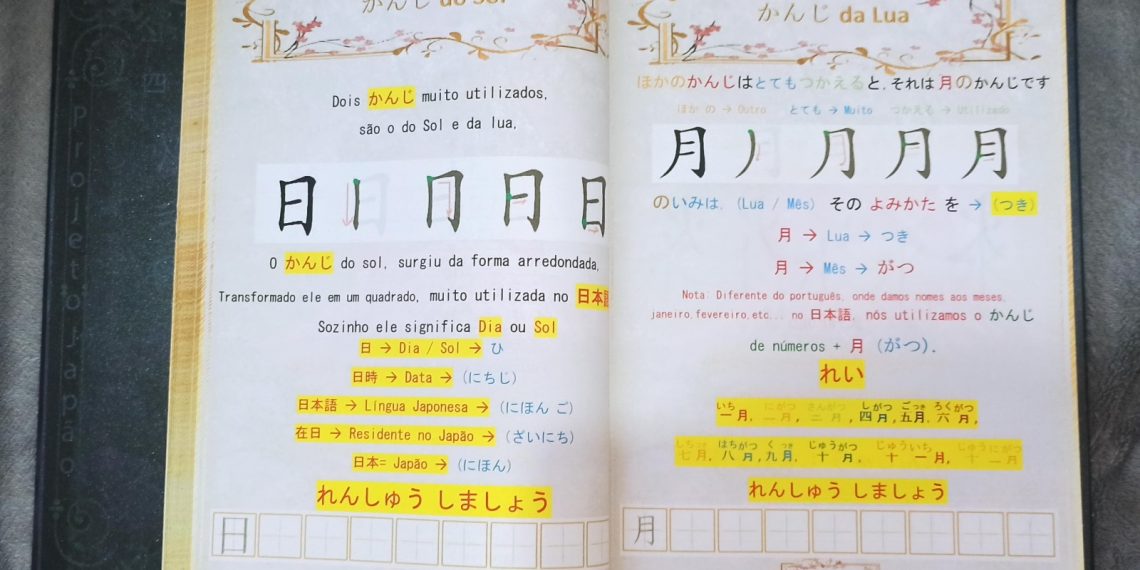 Projeto Japão
四
かんじ do Sol
Dois かんじ muito utilizados,
são o do Sol e da lua,
日
O かんじ do sol, surgiu da forma arredondada,
Transformado ele em um quadrado, muito utilizada no 日本語
Sozinho ele significa Dia ou Sol
日 → Dia / Sol → ひ
日時 → Data → (にちじ)
日本語 → Língua Japonesa → (にほん ご)
在日 → Residente no Japão → (ざいにち)
日本= Japão → (にほん)
れんしゅう しましょう
日
かんじ da Lua
ほかのかんじはとてもつかえると,それは月のかんじです
ほか の → Outro とても → Muito つかえる → Utilizado
月
のいみは, (Lua / Mês) その よみかた を → (つき)
月 → Lua → つき
月 → Mês → がつ
Nota: Diferente do português, onde damos nomes aos meses,
janeiro,fevereiro,etc... no 日本語, nós utilizamos o かんじ
de números + 月 (がつ).
れい
いち にがつ さんがつ しがつ ごつき ろくがつ
一月, 二月, 三月, 四月,五月, 六月,
しちつき はちがつ く つき じゅうがつ じゅういち じゅうにがつ
七月, 八月,九月, 十月, 十一月, 十二月
れんしゅう しましょう
月